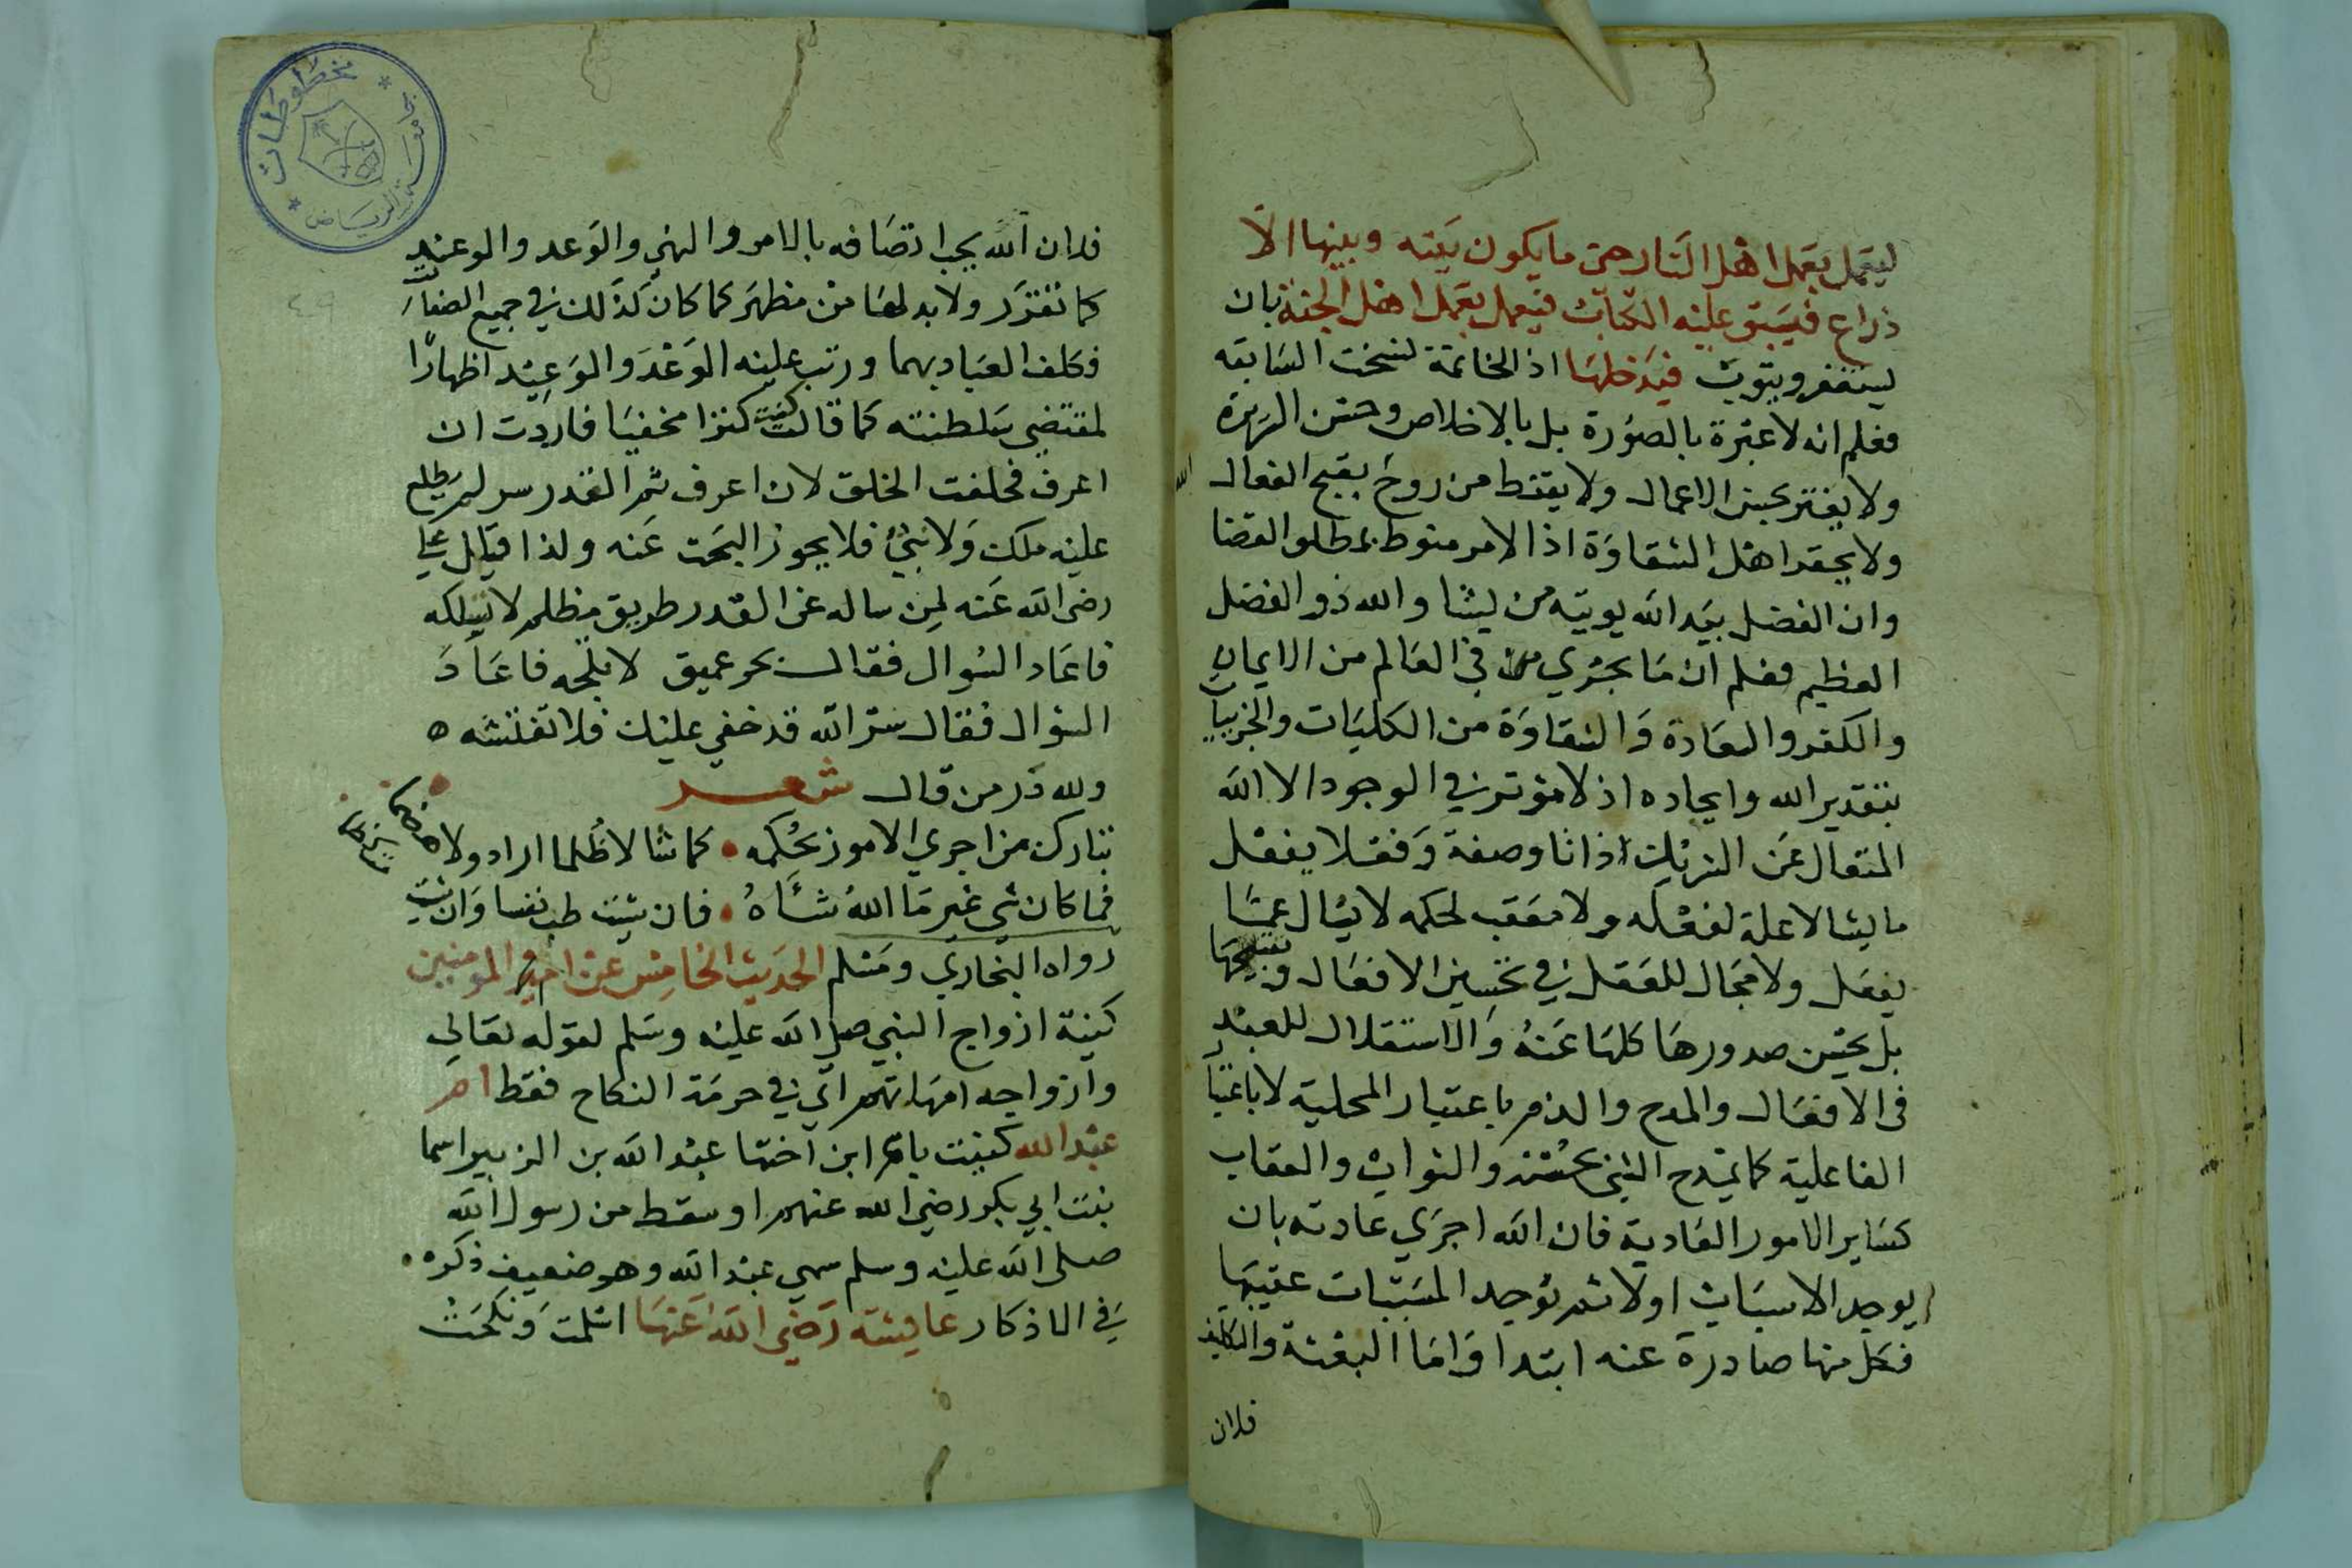 ليعمل بعمل اهل النار حتى ما يكون بينه وبينها الا
ذراع فيسبق عليه الكتاب فيعمل بعمل اهل الجنة بان
يستغفر ويتوب فيدخلها اذ الخاتمة نسخت السابقه
فعلم انه لا عبرة بالصورة بل بالاخلاص وحسن السريرة
ولا يغتر بحسن الاعمال ولا يقنط من روح بقبح الفعال
الله
ولا يحقر اهل الشقاوة اذ الامر منوط بمطلو القضا
وان الفضل بيد الله يوتيه من يشا والله ذو الفضل
العظيم فعلم ان ما يجري في العالم من الايمان
والكفر والسعادة والشقاوة من الكليات والجزييات
بتقدير الله وايجاده اذ لا مؤثر في الوجود الا الله
المتعال عن الشريك ذاتا وصفة وفعلا يفعل
ما يشا لا علة لفعله ولا معقب لحكمه لا يسال عما
يفعل ولا مجال للعقل في تحسين الافعال وتقبيحها
بل يحسن صدورها كلها عنه والاستقلال للعبد
في الافعال والمدح والذم باعتبار المحلية لا باعتبار
الفاعلية كما يمدح الشي بحسنه والثواب والعقاب
كساير الامور العادية فان الله اجري عادته بان
يوجد الاسباب اولا ثم يوجد المسببات عقيبها
فكل منها صادرة عنه ابتدا واما البعثة والتكليف
فلان
مخطوطات
جامعة الرياض
٤٩
فلان الله يجب اتصافه بالامر والنهي والوعد والوعيد
كما تقرر ولا بد لها من مظهر كما كان كذلك في جميع الصفات
فكلف العباد بهما ورتب عليه الوعد والوعيد اظهارا
لمقتضي سلطنته كما قال كنت كنزا مخفيا فاردت ان
اعرف فخلقت الخلق لان اعرف ثم القدر سر لم يطلع
عليه ملك ولا نبي فلا يجوز البحث عنه ولذا قال علي
رضي الله عنه لمن ساله عن القدر طريق مظلم لا تسلكه
فاعاد السوال فقال بحر عميق لا تلجه فاعاد
السوال فقال سر الله قد خفي عليك فلا تفتشه ه
ولله در من قال شعر
تبارك من اجري الامور بحكمه • كما شا لا ظلما اراد ولا هضما
فما كان شي غير ما الله شاه • فان شيت طب نفسا وان شيت
رواه البخاري ومسلم الحديث الخامس عن ام المومنين
كنية ازواج النبي صلى الله عليه وسلم لقوله تعالي
وازواجه امهاتهم اي في حرمة النكاح فقط ام
عبد الله كنيت بام ابن اختها عبد الله بن الزبير اسما
بنت ابي بكر رضي الله عنهم او سقط من رسول الله
صلى الله عليه وسلم سمي عبد الله وهو ضعيف ذكره •
في الاذكار عايشة رضي الله عنها اسلمت ونكحت